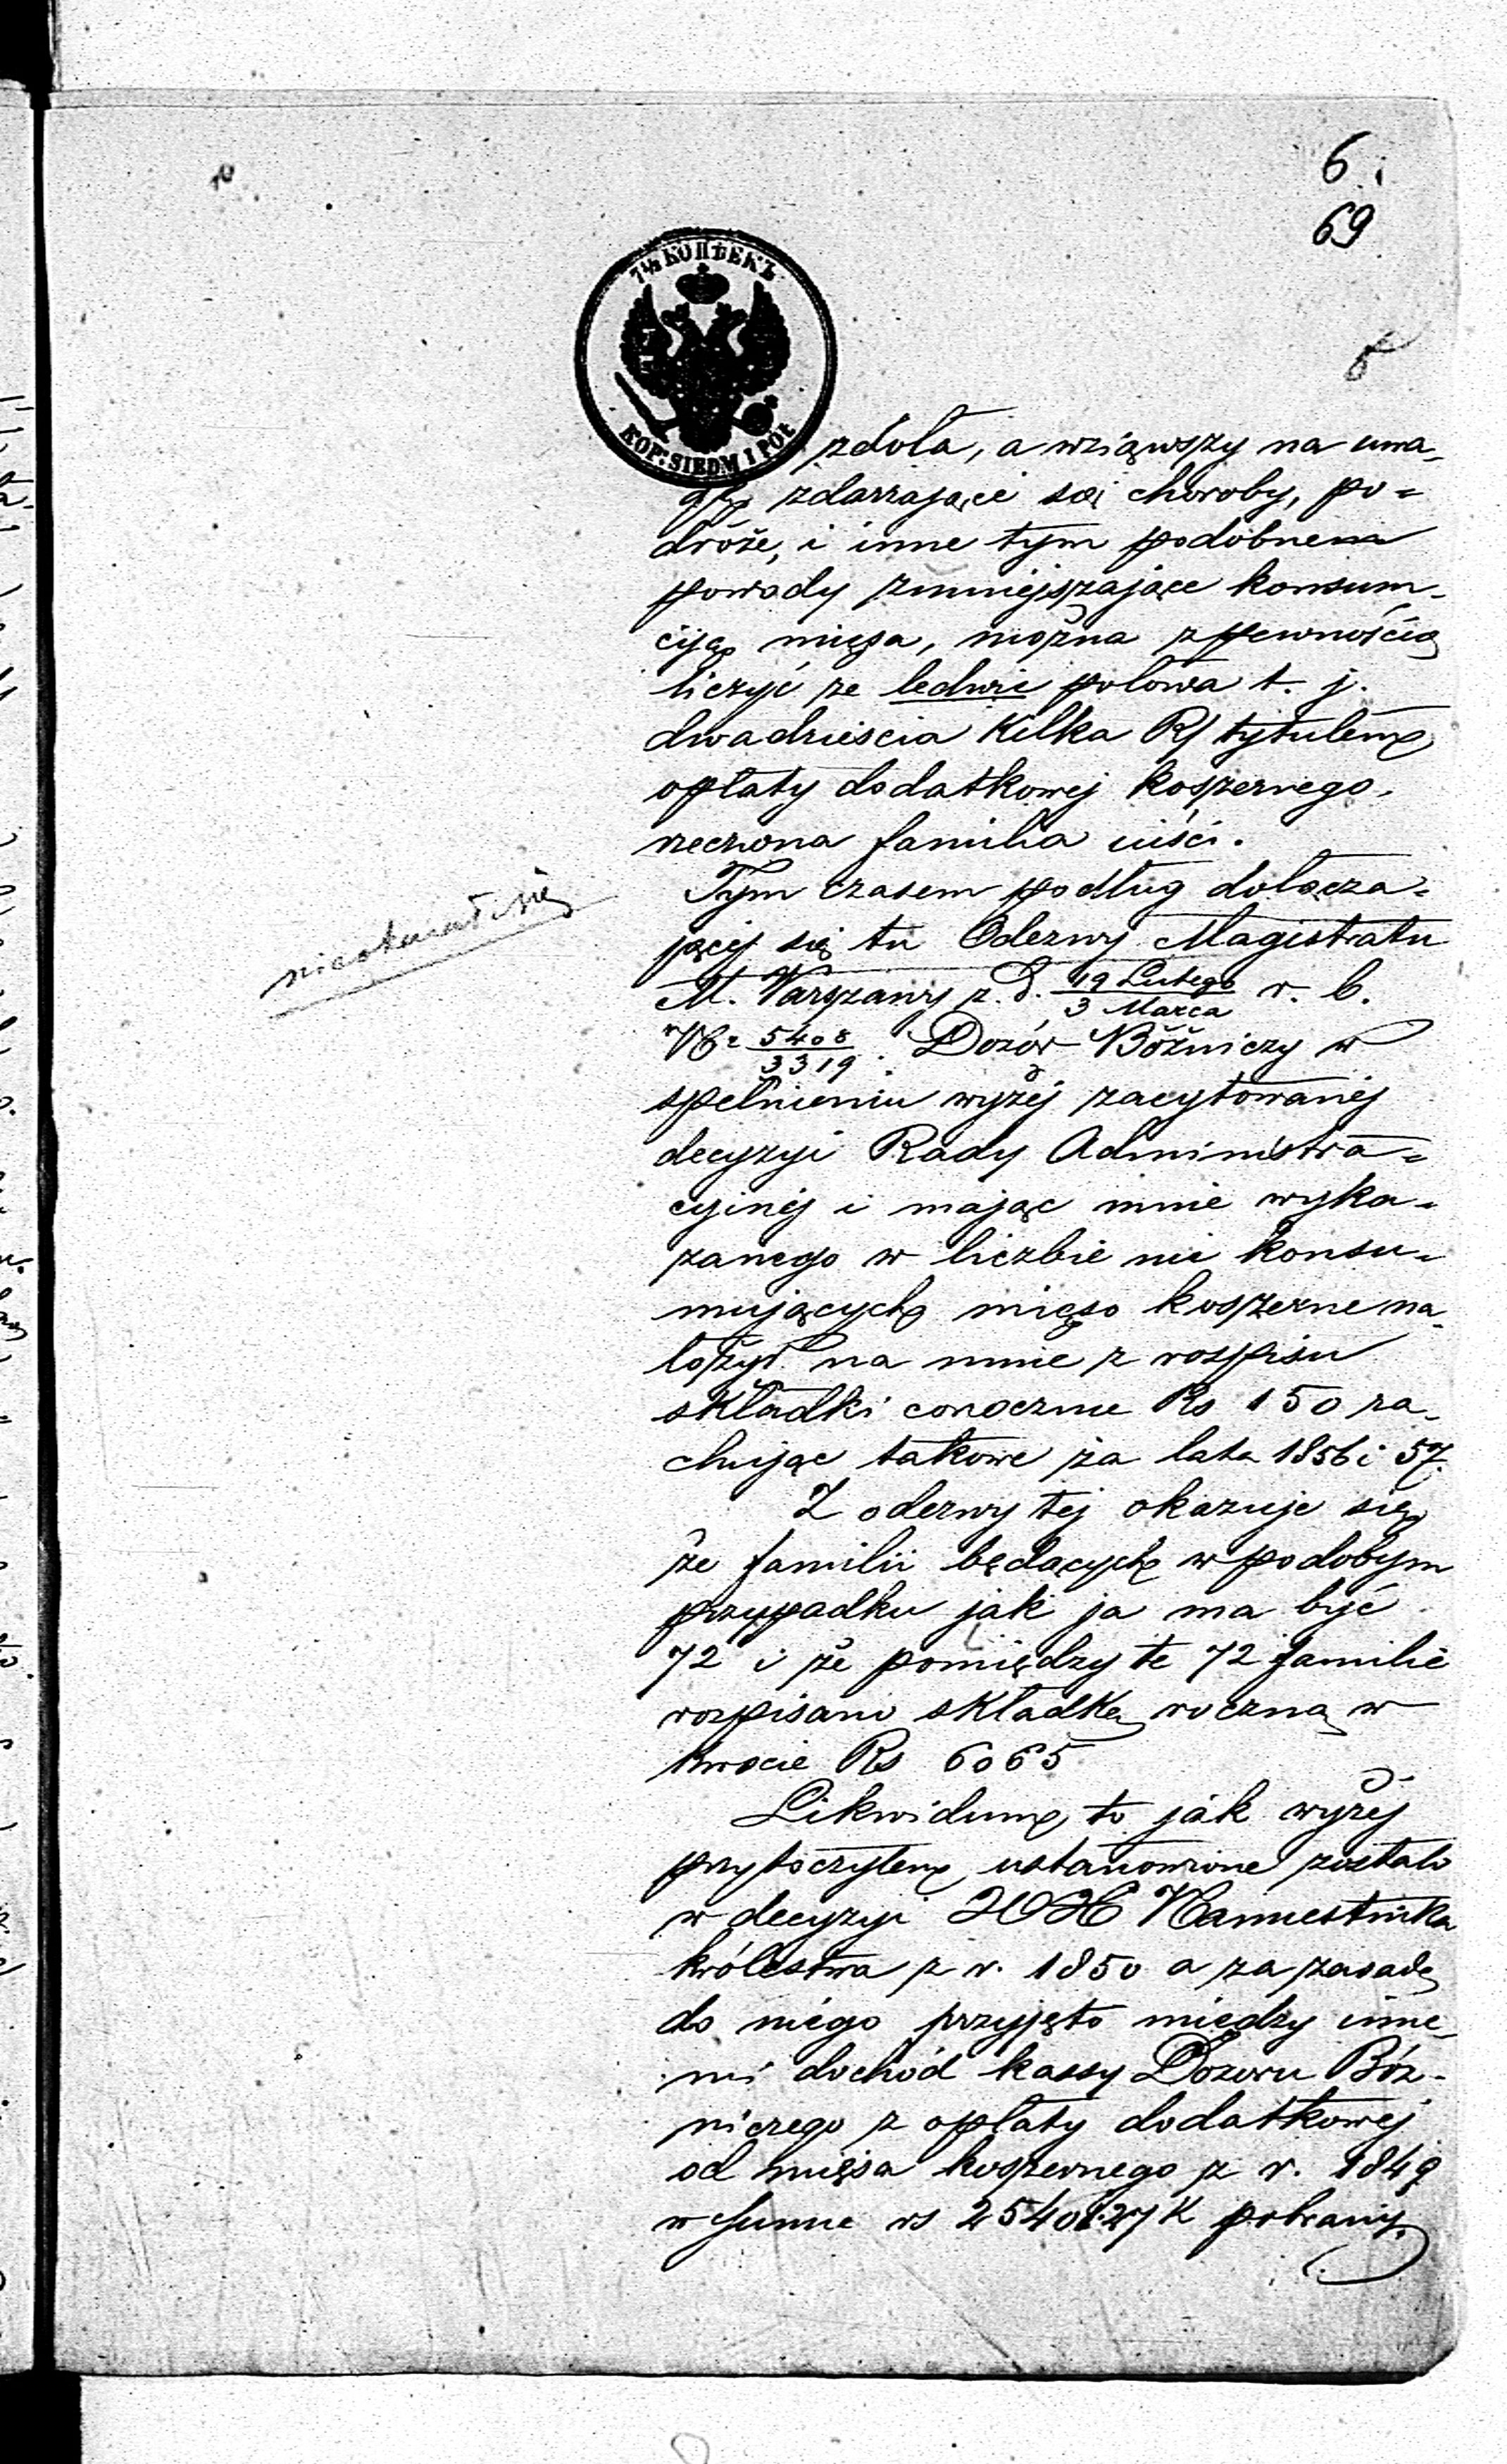 6.
69
7½ КОПѢЕКЪ
KOP: SIEDM I PÓŁ
zdoła, a wziąwszy na uwa-
gę zdarzające się choroby, po=
dróże, i inne tym podobne
powody zmniejszające konsum-
cyją mięsa, można z pewnością
liczyć że ledwie połowa t. j.
dwadzieścia kilka Rs tytułem
opłaty dodatkowej koszernego,
rzeczona familia uiści.
Tym czasem podług dołącza=
jącej się tu Odezwy Magistratu
M. Warszawy z. d. 19 Lutego / 3 Marca r. b.
№ 5408 / 3319. Dozór Bóżniczy w
spełnieniu wyżej zacytowanej
decyzyi Rady Administra=
cyinéj i mając mnie wyka=
zanego w liczbie nie konsu=
mujących mięso koszerne na-
łożył na mnie z rozpisu
składki corocznie Rs 150 ra-
chując takowe za lata 1856 i 57.
Z odezwy tej okazuje się
że familii będących w podobym
przypadku jak ja ma być
72 i że pomiędzy te 72 familie
rozpisano składkę roczną w
kwocie Rs 6065
Likwidum to jak wyżej
przytoczyłem ustanowione zostało
w decyzyi JOX Namiestnika
królestwa z r. 1850 a za zasadę
do niego przyjęto między inne-
mi dochód kassy Dozoru Bóż-
niczego z opłaty dodatkowej
od mięsa koszernego z r. 1849
w summie rs 25401.27 K pobrany.